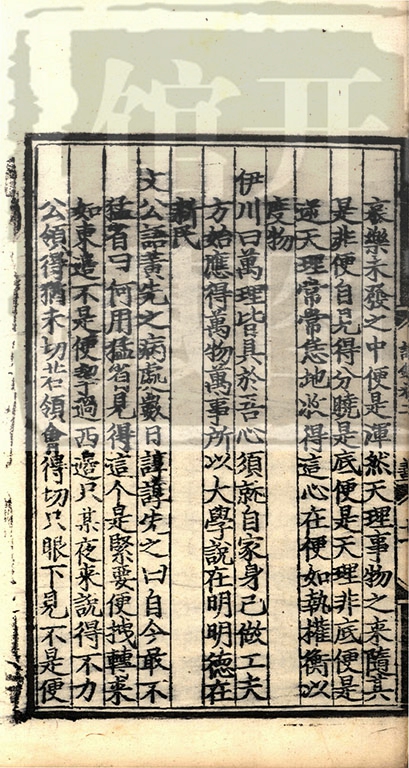 哀樂未發之中便是渾然天理事物之來隨其
是非便自見得分曉是底便是天理非底便是
逆天理常常恁地收得這心在便如執權衡以
度物
伊川曰萬理皆具於吾心須就自家身己做工夫
方始應得萬物萬事所以大學說在明明德在
新民
文公語黃先之病處數日諄諄先之曰自今敢不
猛省曰何用猛省見得這个是緊要便拽轉來
如東邊不是便掣過西邊只某夜來說得不力
公領得猶未切若領會得切只眼下見不是便